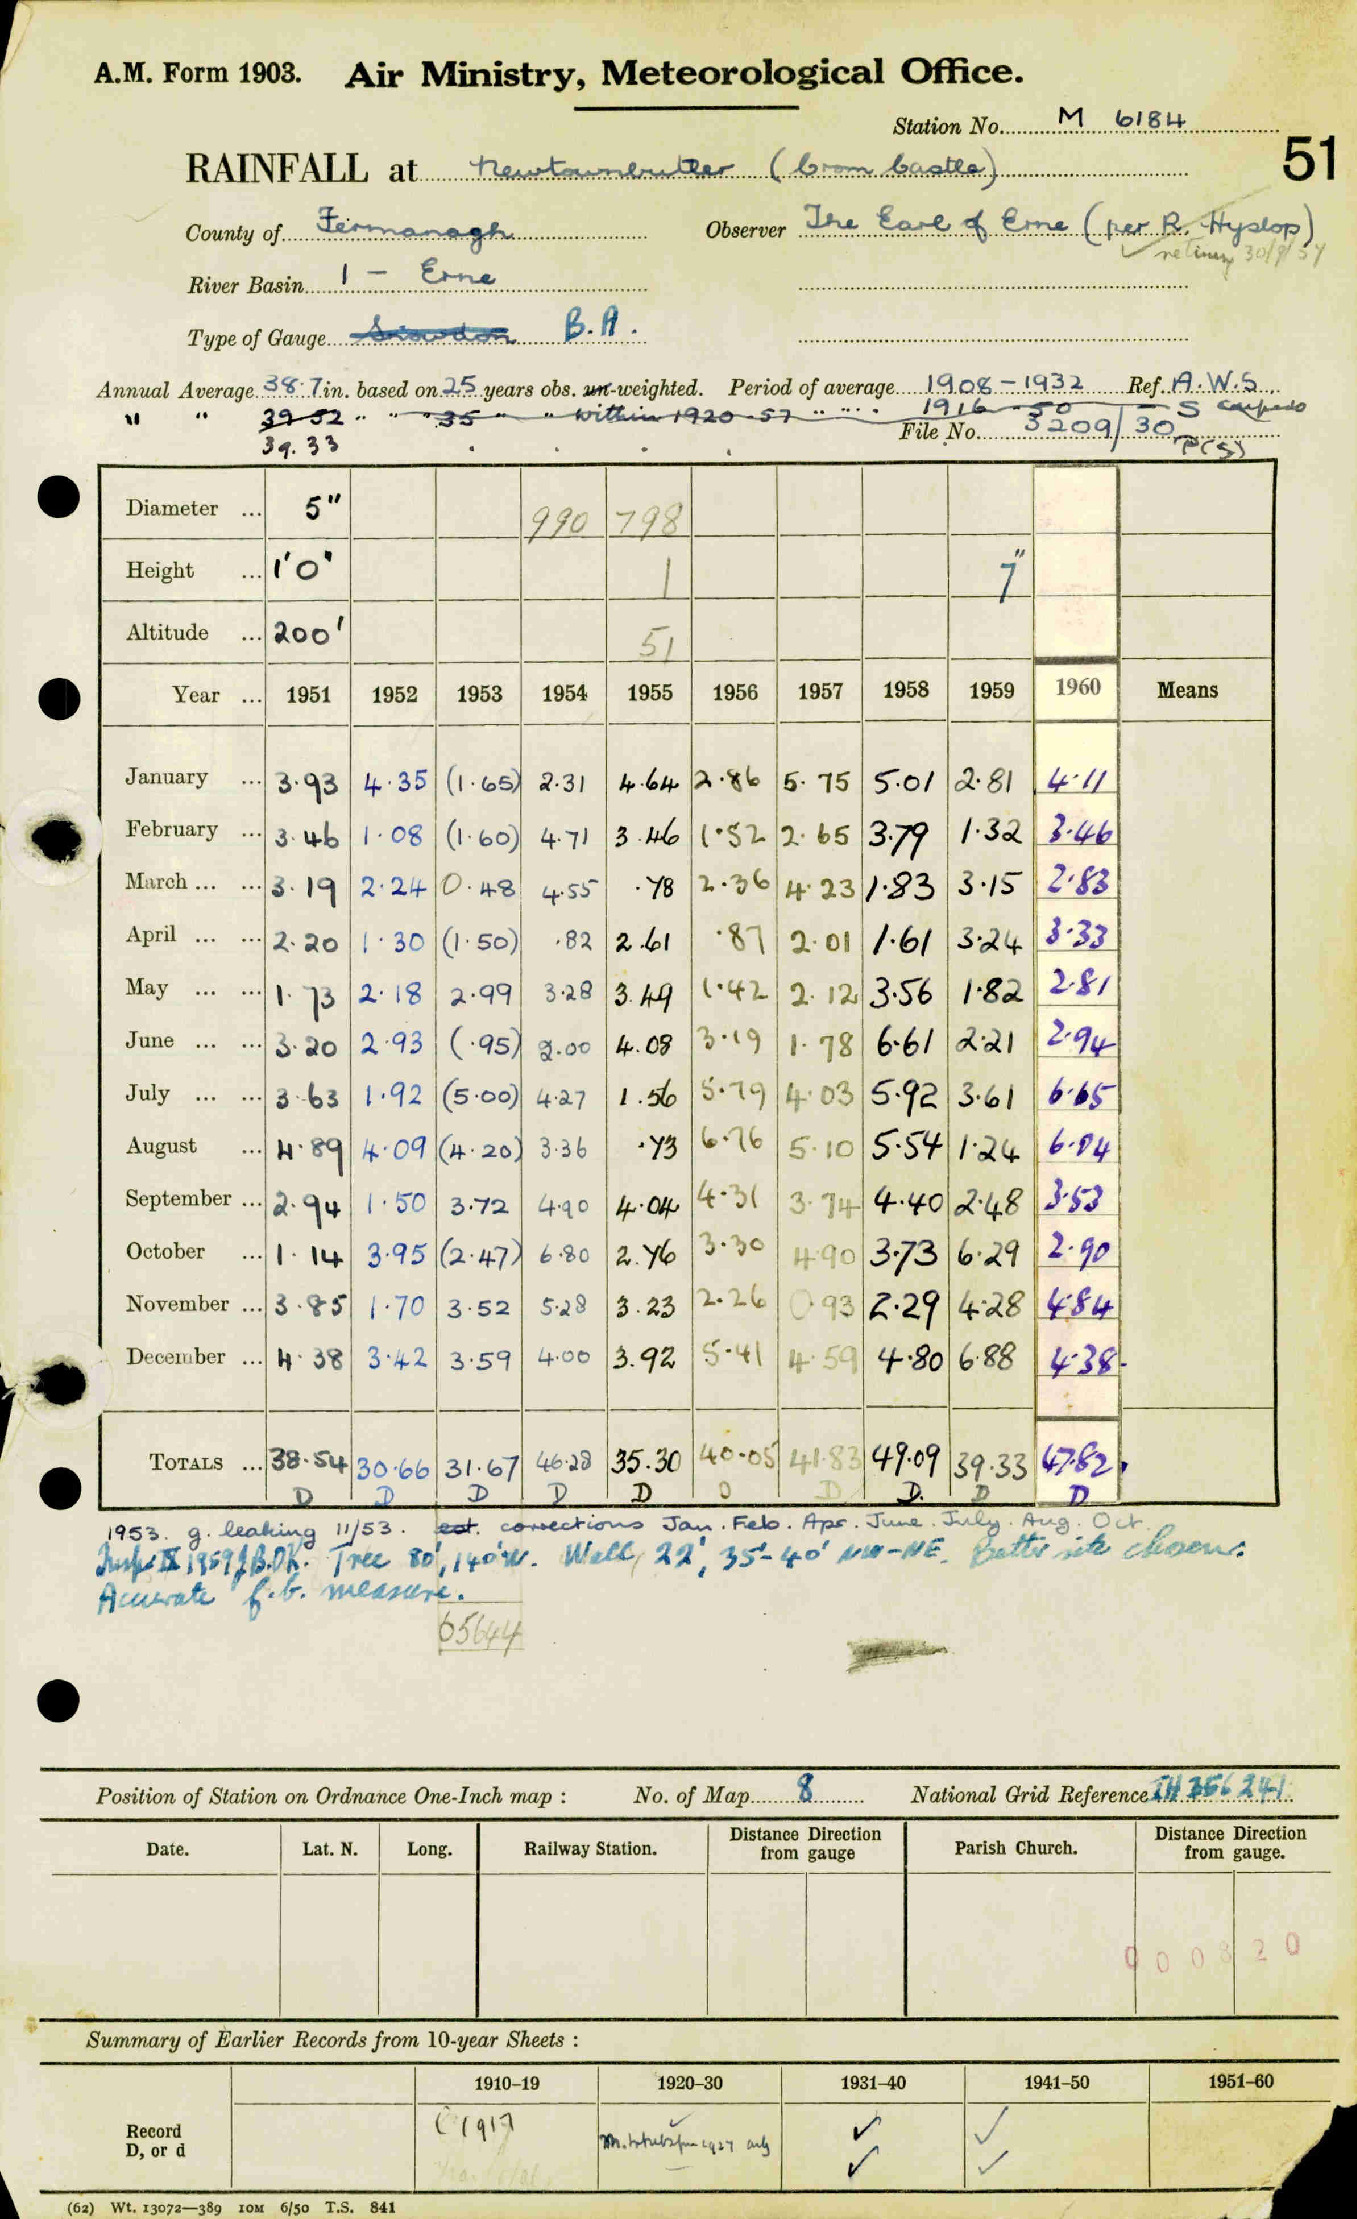 A.M. Form 1903. Air Ministry, Meteorological Office.
Station No. M 6184
51
RAINFALL at Newtownbutler (Crom Castle)
County of Fermanagh Observer The Earl of Erne (per R. Hyslop)
retiring 30/9/57
River Basin 1 - Erne
Type of Gauge Snowdon B.A.
Annual Average 38.7 in. based on 25 years obs. un-weighted. Period of average 1908-1932 Ref. A.W.S.
" " 39.52 " " " 35 " " within 1920-57 " " " 1916-50 - S
39.33 File No. 3209/30 P(S)
Diameter ... 5" 990 798
Height ... 1'0" 1 7"
Altitude ... 200' 51
Year ... 1951 1952 1953 1954 1955 1956 1957 1958 1959 1960 Means
January ... 3.93 4.35 (1.65) 2.31 4.64 2.86 5.75 5.01 2.81 4.11
February ... 3.46 1.08 (1.60) 4.71 3.46 1.52 2.65 3.79 1.32 3.46
March ... ... 3.19 2.24 0.48 4.55 .78 2.36 4.23 1.83 3.15 2.83
April ... ... 2.20 1.30 (1.50) .82 2.61 .87 2.01 1.61 3.24 3.33
May ... ... 1.73 2.18 2.99 3.28 3.49 1.42 2.12 3.56 1.82 2.81
June ... ... 3.20 2.93 (.95) 2.00 4.08 3.19 1.78 6.61 2.21 2.94
July ... ... 3.63 1.92 (5.00) 4.27 1.56 5.79 4.03 5.92 3.61 6.65
August ... 4.89 4.09 (4.20) 3.36 .73 6.76 5.10 5.54 1.24 6.04
September ... 2.94 1.50 3.72 4.90 4.04 4.31 3.74 4.40 2.48 3.53
October ... 1.14 3.95 (2.47) 6.80 2.76 3.30 4.90 3.73 6.29 2.90
November ... 3.85 1.70 3.52 5.28 3.23 2.26 0.93 2.29 4.28 4.84
December ... 4.38 3.42 3.59 4.00 3.92 5.41 4.59 4.80 6.88 4.38
TOTALS ... 38.54 30.66 31.67 46.28 35.30 40.05 41.83 49.09 39.33 47.82
D D D D D D D D. D D
1953. g. leaking 11/53. est. corrections Jan. Feb. Apr. June. July. Aug. Oct.
Insp. IX 1959 J.B.D.K. Tree 80', 140'W. Wall, 22', 35'-40' NW-NE. Better site chosen.
Accurate f.b. measure.
65644
Position of Station on Ordnance One-Inch map : No. of Map 8 National Grid Reference IH 356 241
Date. Lat. N. Long. Railway Station. Distance Direction from gauge Parish Church. Distance Direction from gauge.
000820
Summary of Earlier Records from 10-year Sheets :
1910-19 1920-30 1931-40 1941-50 1951-60
Record D, or d (1917 ✓ ✓ ✓
1927 only ✓ ✓
(62) Wt. 13072—389 10M 6/50 T.S. 841